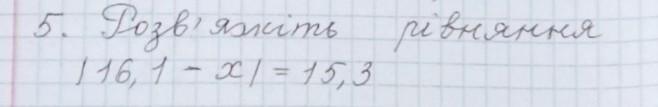 5. Розв'яжіть рівняння
|16,1 - x| = 15,3